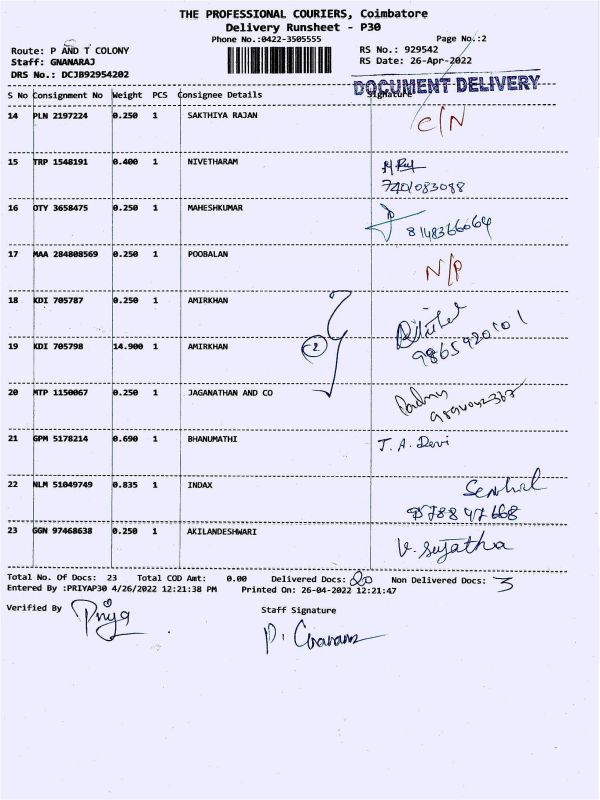 THE PROFESSIONAL COURIERS, Coimbatore
Delivery Runsheet - P30
Phone No.:0422-3505555
Page No.:2
Route: P AND T COLONY
RS No.: 929542
Staff: GNANARAJ
RS Date: 26-Apr-2022
DRS No.: DCJB92954202
DOCUMENT DELIVERY
S No Consignment No Weight PCS Consignee Details Signature
14 PLN 2197224 0.250 1 SAKTHIYA RAJAN C/N
15 TRP 1548191 0.400 1 NIVETHARAM
7401083088
16 OTY 3658475 0.250 1 MAHESHKUMAR
8148366064
17 MAA 284808569 0.250 1 POOBALAN N/P
18 KDI 705787 0.250 1 AMIRKHAN
2
19 KDI 705798 14.900 1 AMIRKHAN
20 MTP 1150067 0.250 1 JAGANATHAN AND CO
21 GPM 5178214 0.690 1 BHANUMATHI J.A. Devi
22 NLM 51049749 0.835 1 INDAX Senthil
23 GGN 97468638 0.250 1 AKILANDESHWARI V. Sujatha
Total No. Of Docs: 23 Total COD Amt: 0.00 Delivered Docs: 20 Non Delivered Docs: 3
Entered By :PRIYAP30 4/26/2022 12:21:38 PM Printed On: 26-04-2022 12:21:47
Verified By Priya
Staff Signature